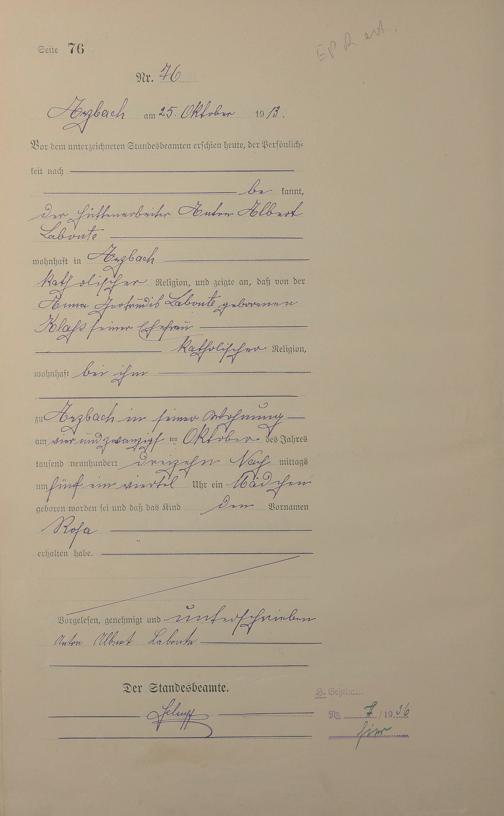 Seite 76
Nr. 76
Arzbach am 25. Oktober 1913.
Vor dem unterzeichneten Standesbeamten erschien heute, der Persönlich-
keit nach
be kannt,
der Hüttenarbeiter Anton Albert
Labonte
wohnhaft in Arzbach
katholischer Religion, und zeigte an, daß von der
Anna Gertrudis Labonte geborenen
Klaß seiner Ehefrau
katholischer Religion,
wohnhaft bei ihm
zu Arzbach in seiner Wohnung
am vier und zwanzigsten Oktober des Jahres
tausend neunhundert dreizehn Nach mittags
um fünf ein viertel Uhr ein Mädchen
geboren worden sei und daß das Kind den Vornamen
Rosa
erhalten habe.
Vorgelesen, genehmigt und unterschrieben
Anton Albert Labonte
Der Standesbeamte.
No. 7/1936
hier